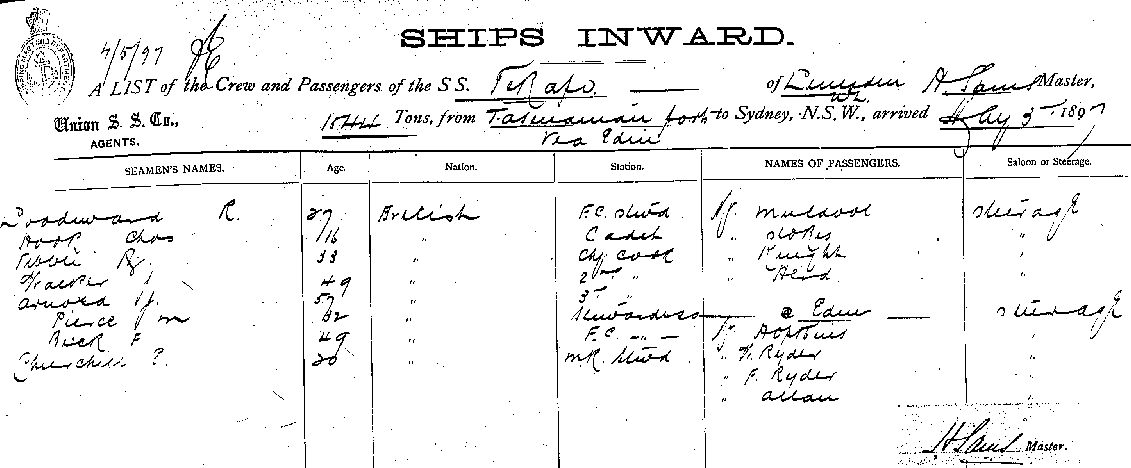 4/5/97
SHIPS INWARD.
A LIST of the Crew and Passengers of the S S. TeKapo of Dunedin H Sams Master,
Union S. S. Co., Tons, from Tasmanian ports to Sydney, N.S.W., arrived May 3rd 1897
AGENTS. Via Eden
SEAMEN'S NAMES. Age. Nation. Station. NAMES OF PASSENGERS. Saloon or Steerage.
Woodward R. 27 British F.C. Stwd Mr steerage
Hook Chas 16 " Cadet " Stokes "
33 " Chf Cook " Knight "
Walker 49 " 2nd " " Head "
Arnold 57 " 3rd "
Pierce 32 " Stewardess @ Eden steerage
Buck F 49 " F.C. " Mr Hopkins "
Churchill ? 20 " M.R. Stwd " H. Ryder "
" F. Ryder "
" Allan "
H Sams Master.